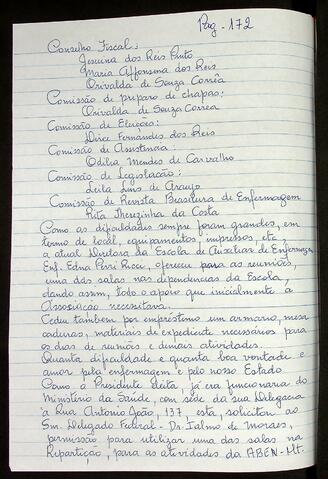 Pag - 172
Conselho Fiscal:
Jesuina dos Reis Pinto
Maria Affonsina dos Reis
Orivalda de Souza Corrêa
Comissão de preparo de chapas:
Orivalda de Souza Correa
Comissão de Eleições:
Dirce Fernandes dos Reis
Comissão de Assistencia:
Odilia Mendes de Carvalho
Comissão de Legislação:
Leila Lins de Araujo
Comissão de Revista Brasileira de Enfermagem
Rita Therezinha da Costa
Como as dificuldades sempre foram grandes, em
termo de local, equipamentos, impressos, etc,
a atual Diretora da Escola de Auxiliar de Enfermagem
Enf. Edna Perri Ricci, ofereceu para as reuniões
uma das salas nas dependencias da Escola,
dando assim, todo o apoio que inicialmente a
Associação necessitava.
Cedeu tambem por empréstimo um armario, mesa
cadeiras, materiais de expediente necessários para
os dias de reuniões e demais atividades.
Quanta dificuldade e quanta boa vontade e
amor pela enfermagem e pelo nosso Estado
Como a Presidente eleita, já era funcionaria do
Ministerio da Saúde, com sede da sua Delegacia
à Rua Antonio João, 137, esta, solicitou ao
Snr. Delegado Federal - Dr. Ialmo de Moraes,
permissão para utilizar uma das salas na
Repartição, para as atividades da ABEN-Mt.